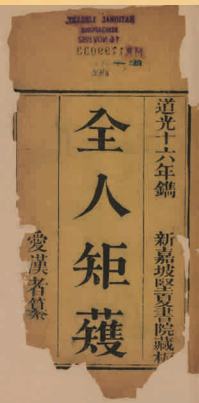 NATIONAL LIBRARY
SINGAPORE
道光十六年鐫 新嘉坡堅夏書院藏板
全人矩矱
愛漢者纂